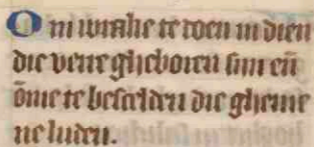 Om wrake te doen in dien
die verre gheboren sijn en̄
ōme te bescelden die gheme
ne luden.